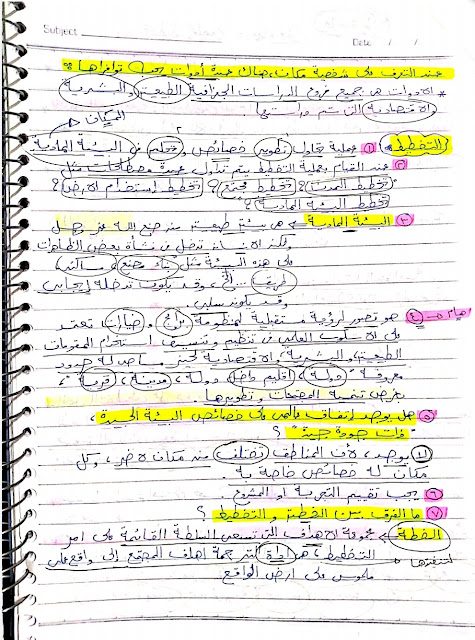 Subject
Date / /
عند التعرف على شخصية مكان، هناك عدة أدوات يجب توافرها *
* الأدوات هي جميع فروع الدراسات الجغرافية الطبيعية والبشرية
الاقتصادية التي تتم دراستها.
المكان
(التخطيط) ① عملية تحاول تطوير خصائص وتحليل في البيئة المادية
② عند القيام بعملية التخطيط يتم تداول عدة مصطلحات مثل
تخطيط المدن؟ تخطيط مجتمع؟ تخطيط استخدام الأرض؟
تخطيط البيئة المادية؟
③ البيئة المادية > هي بيئة طبيعية من صنع الله عز وجل
ولكن الإنسان تدخل في نشأة بعض الظاهرات
في هذه البيئة مثل بناء مصنع، مساكن،
طريق ... الخ، وقد يكون تدخله إيجابي
وقد يكون سلبي.
هام ④ هو تصور لرؤية مستقبلية لمنظومة وخيارات تعتمد
على الأسلوب العلمي في تنظيم وتنسيق استخدام المقومات
الطبيعية والبشرية والاقتصادية لحيز مساحة له حدود
معروفة "دولة، إقليم داخل دولة، مدينة، قرية"
بغرض تنمية المجتمعات وتطويرها.
⑤ هل يوجد اتفاق عالمي على خصائص البيئة الجيدة،
"ذات جودة جيدة" ؟
لا يوجد، لأن المناطق تختلف من مكان لآخر، وكل
مكان له خصائص خاصة به.
⑥ يجب تقييم التجربة أو المشروع.
⑦ ما الفرق بين الخطة والتخطيط ؟
الخطة > مجموعة الأهداف التي تسعى السلطة القائمة على أمر
التخطيط، هي أداة لترجمة أهداف المجتمع إلى واقع
لتنفيذها
ملموس على أرض الواقع